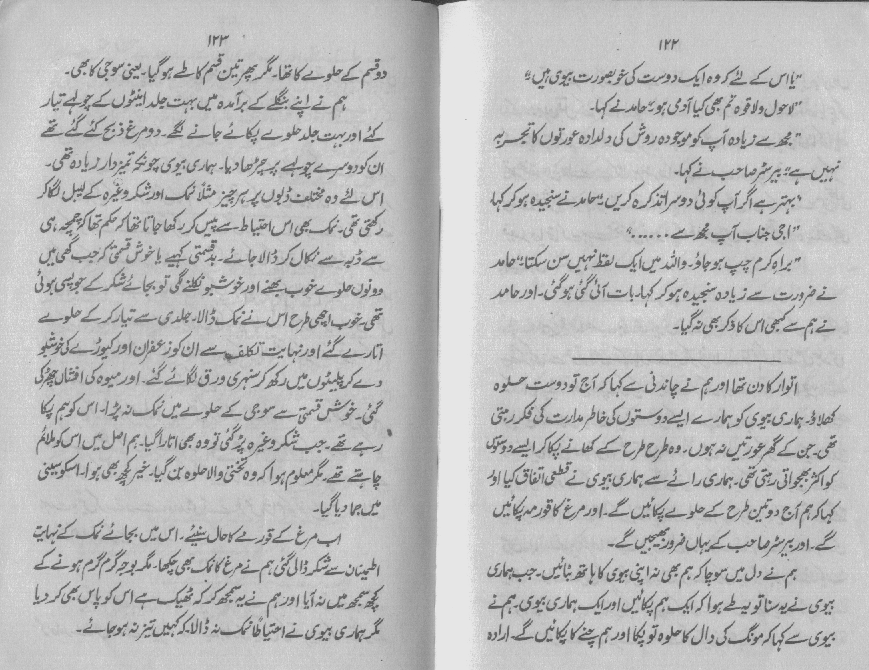 ۱۲۲
"یا اس کے لئے کہ وہ ایک دوست کی خوبصورت بیوی ہیں۔"
"لاحول ولا قوۃ تم بھی کیا آدمی ہو۔" حامد نے کہا۔
"مجھ سے زیادہ آپ کو موجودہ روش کی دلدادہ عورتوں کا تجربہ
نہیں ہے" بیرسٹر صاحب نے کہا۔
"بہتر ہے اگر آپ کوئی دوسرا تذکرہ کریں۔" حامد نے سنجیدہ ہو کر کہا
"اجی جناب آپ مجھ سے ......"
"براہ کرم چپ ہو جاؤ۔ واللہ میں ایک لفظ نہیں سن سکتا" حامد
نے ضرورت سے زیادہ سنجیدہ ہو کر کہا۔ بات آئی گئی ہو گئی۔ اور حامد
نے ہم سے کبھی اس کا ذکر بھی نہ کیا۔
اتوار کا دن تھا اور ہم نے چاندنی سے کہا کہ آج تو دوست حلوہ
کھلاؤ۔ ہماری بیوی کو ہمارے ایسے دوستوں کی خاطر مدارت کی فکر رہتی
تھی۔ جن کے گھر عورتیں نہ ہوں۔ وہ طرح طرح کے کھانے پکا کر ایسے دوستوں
کو اکثر بھجواتی رہتی تھی۔ ہماری رائے سے ہماری بیوی نے قطعی اتفاق کیا اور
کہا کہ ہم آج دو تین طرح کے حلوے پکائیں گے۔ اور مرغ کا قورمہ پکائیں
گے۔ اور بیرسٹر صاحب کے یہاں ضرور بھیجیں گے۔
ہم نے دل میں سوچا کہ ہم بھی نہ اپنی بیوی کا ہاتھ بٹائیں۔ جب ہماری
بیوی نے یہ سنا تو یہ طے ہوا کہ ایک ہم پکائیں اور ایک ہماری بیوی۔ ہم نے
بیوی سے کہا کہ مونگ کی دال کا حلوہ تو پکا اور ہم چنے کا پکائیں گے۔ ارادہ
۱۲۳
دو قسم کے حلوے کا تھا۔ مگر پھر تین قسم کا طے ہو گیا۔ یعنی سوجی کا بھی۔
ہم نے اپنے بنگلے کے برآمدہ میں بہت جلد اینٹوں کے چولہے تیار
کئے اور بہت جلد حلوے پکائے جانے لگے۔ دو مرغ ذبح کئے گئے تھے
ان کو دوسرے چولہے پر چڑھا دیا۔ ہماری بیوی چونکہ تمیزدار زیادہ تھی۔
اس لئے وہ مختلف ڈبوں پر ہر چیز مثلاً نمک اور شکر وغیرہ کے لیبل لگا کر
رکھتی تھی۔ نمک بھی اس احتیاط سے پیس کر رکھا جاتا تھا کہ حکم تھا کہ چمچہ ہی
سے ڈبہ سے نکال کر ڈالا جائے۔ بدقسمتی کہیے یا خوش قسمتی کہ جب گھی میں
دونوں حلوے خوب بھنے اور خوشبو نکلنے لگی تو بجائے شکر کے جو پسی ہوئی
تھی۔ خوب اچھی طرح اس نے نمک ڈالا۔ جلدی سے تیار کر کے حلوے
اتارے گئے اور نہایت تکلف سے ان کو زعفران اور کیوڑے کی خوشبو
دے کر پلیٹوں میں رکھ کر سنہری ورق لگائے گئے۔ اور میوہ کی افشاں چھڑکی
گئی۔ خوش قسمتی سے سوجی کے حلوے میں نمک نہ پڑا۔ اس کو ہم پکا
رہے تھے۔ جب شکر وغیرہ پڑ گئی تو وہ بھی اتارا گیا۔ ہم اصل میں اس کو ملائم
چاہتے تھے۔ مگر معلوم ہوا کہ وہ تختی والا حلوہ بن گیا۔ خیر کچھ بھی ہوا۔ اسکو سینی
میں جما دیا گیا۔
اب مرغ کے قورمے کا حال سنیئے۔ اس میں بجائے نمک کے نہایت
اطمینان سے شکر ڈالی گئی ہم نے مرغ کا نمک بھی چکھا۔ مگر بوجہ گرم گرم ہونے کے
کچھ سمجھ میں نہ آیا اور ہم نے یہ سمجھ کر کہ ٹھیک ہے اس کو پاس بھی کر دیا
مگر ہماری بیوی نے احتیاطاً نمک نہ ڈالا کہ کہیں تیز نہ ہو جائے۔